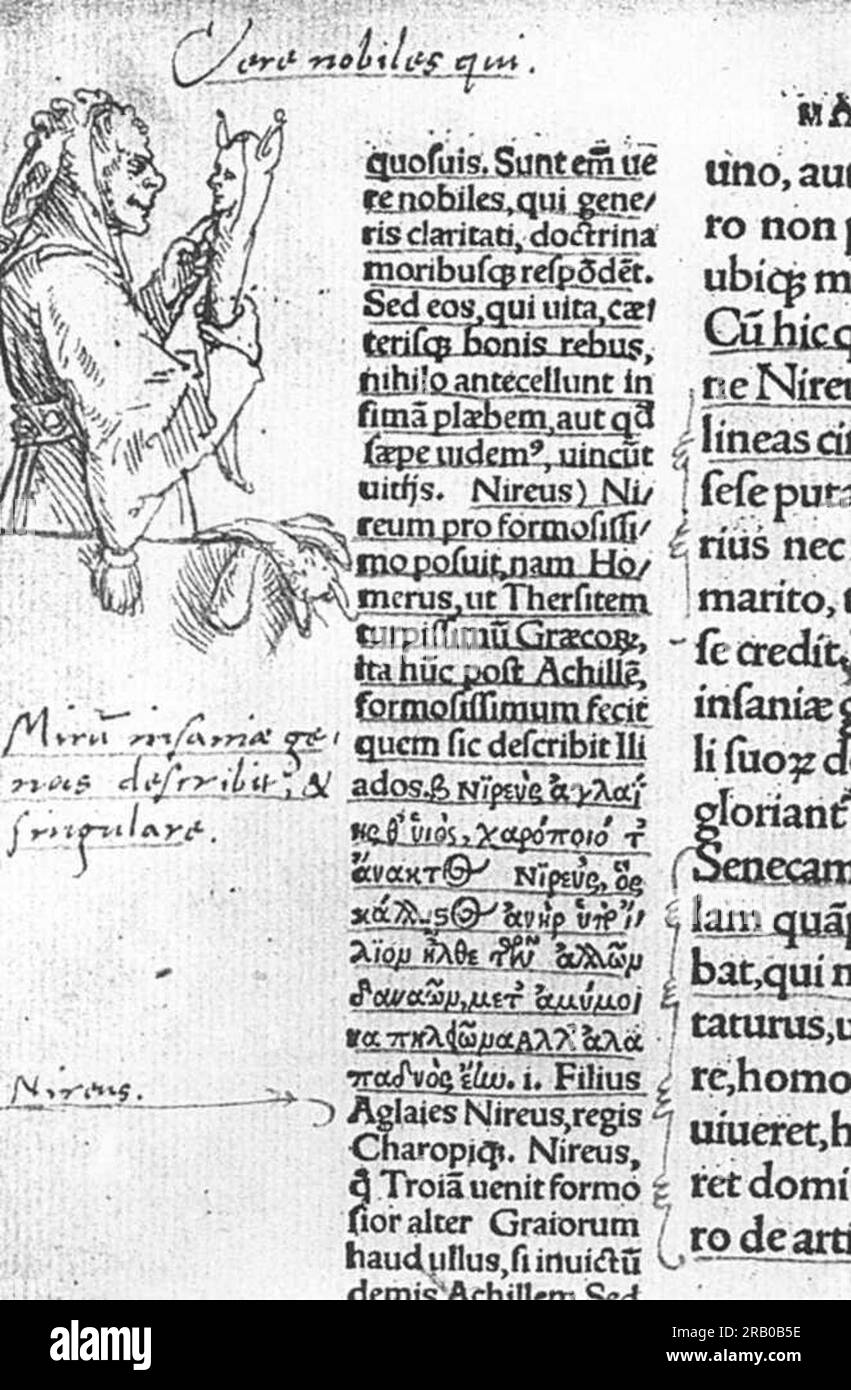 Vere nobiles qui.
quoſuis. Sunt em̄ ue
re nobiles, qui gene/
ris claritati, doctrina
moribuſqꝫ reſpōdēt.
Sed eos, qui uita, cæt
teriſqꝫ bonis rebus,
nihilo antecellunt in
fimā plæbem, aut qd̄
ſæpe uidemꝰ, uincūt
uitijs. Nireus) Ni/
reum pro formoſiſſi/
mo poſuit, nam Ho/
merus, ut Therſitem
turpiſſimū Græcoꝝ,
ita hūc poſt Achillē,
formoſiſſimum fecit
quem ſic deſcribit Ili
ados. β Νϊρεὺς ἀγλαΐ
ης θ' υιὸς, χαρόποιό τ'
ἄνακτος Νϊρεὺς, ὃς
κάλλιςος ἀνὴρ ὑπ' ἴ
λϊομ ἦλθε τῶμ ἄλλωμ
δαναῶμ, μετ' ἀμύμοι
να πηλείωμα ΑΛΛ' ἀλα
παδνὸς ἔην. i. Filius
Aglaies Nireus, regis
Charopiqꝫ. Nireus,
q̄ Troiā uenit formo
ſior alter Graiorum
haud ullus, ſi inuictū
demis Achillem Sed
Mirū inſaniæ ge,
nus deſcribit, &
ſingulare.
Nireus.
MA
uno, aut
ro non p
ubiqꝫ m
Cū hic q
ne Nireu
lineas cir
ſeſe puta
rius nec
marito, t
ſe credit,
inſaniæ g
li ſuoꝝ d
gloriant
Senecam
lam quāp
bat, qui n
taturus, u
re, homo
uiueret, h
ret domi
ro de arti
alamy
Image ID: 2RB0B5E
www.alamy.com